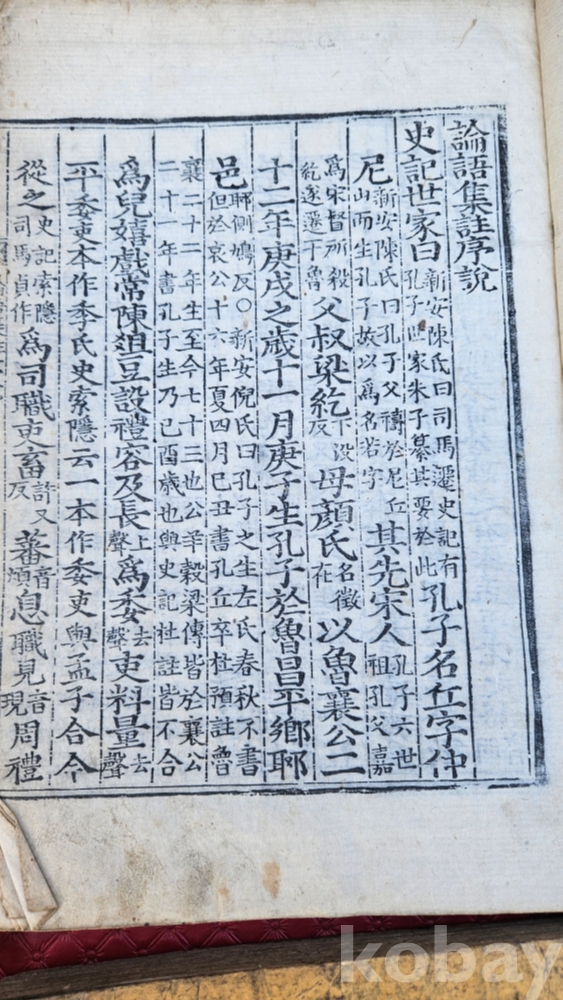 論語集註序說
史記世家曰新安陳氏曰司馬遷史記有孔子世家朱子纂其要於此孔子名丘字仲
尼新安陳氏曰孔子父禱於尼丘山而生孔子故以爲名若字其先宋人孔子六世祖孔父嘉
爲宋督所殺紇遂遷于魯父叔梁紇下沒反母顏氏名徵在以魯襄公二
十二年庚戌之歲十一月庚子生孔子於魯昌平鄉郰
邑郰側鳩反○新安倪氏曰孔子之生左氏春秋不書但於哀公十六年夏四月己丑書孔丘卒杜預註魯
襄二十二年生至今七十三也公羊穀梁傳皆於襄公二十一年書孔子生乃己酉歲也與史記杜註皆不合
爲兒嬉戲常陳俎豆設禮容及長上聲爲委去聲吏料量去聲
平委吏本作季氏史索隱云一本作委吏與孟子合今
從之史記索隱司馬貞作爲司職吏畜許又反蕃音煩息職見音現周禮
kobay